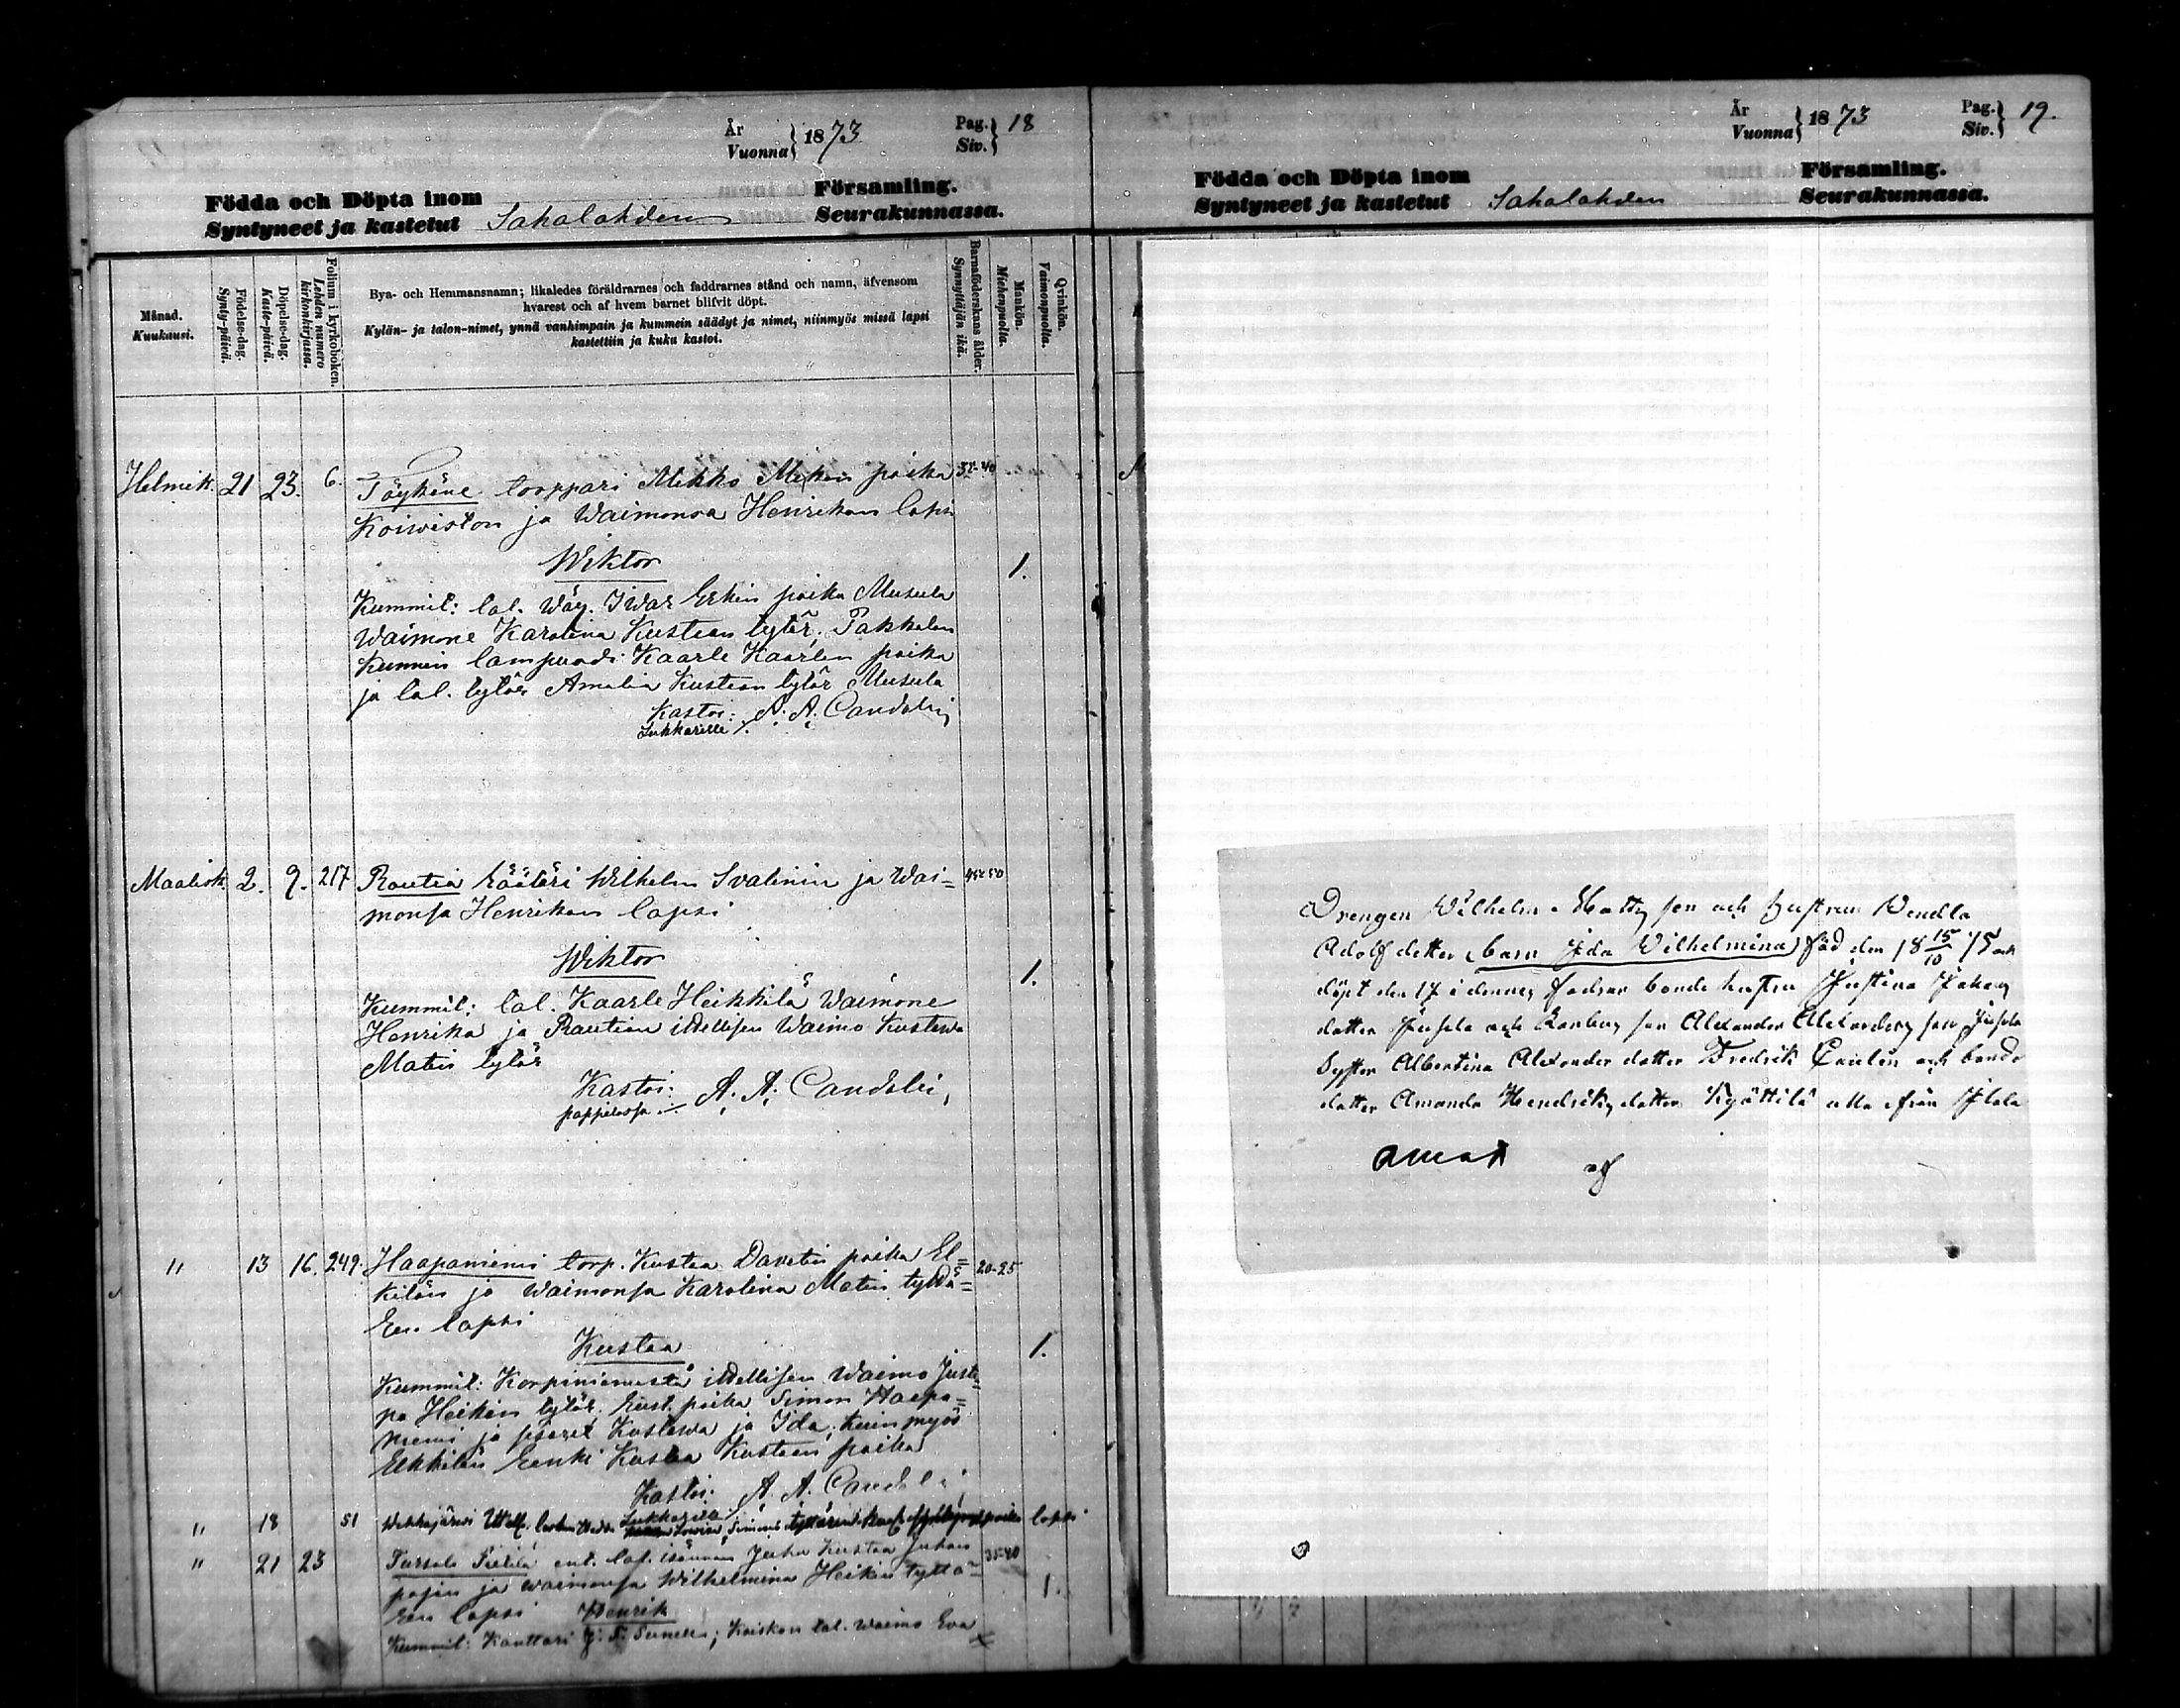 År
Vuonna} 1873
Pag.
Siv.} 18
Födda och Döpta inom Församling.
Syntyneet ja kastetut Sahalahden Seurakunnassa.
Månad.
Kuukausi.
Födelse-dag.
Synty-päivä.
Döpelse-dag.
Kaste-päivä.
Folium i kyrkoboken.
Lehden numero
kirkonkirjassa.
Bya- och Hemmansnamn; likaledes föräldrarnes och faddrarnes stånd och namn, äfvensom
hvarest och af hvem barnet blifvit döpt.
Kylän- ja talon-nimet, ynnä vanhimpain ja kummein säädyt ja nimet, niinmyös missä lapsi
kastettiin ja kuka kastoi.
Barnaföderskans ålder.
Synnyttäjän ikä.
Mankön.
Miehenpuolta.
Qvinkön.
Vaimonpuolta.
Helmik. 21 23. 6. torppari Mikko Mikin poika
Koiwiston ja Waimonsa Henrikan lapsi
Wiktor 1.
Kummit: tal. Wäg. Iwar Erkin poika Musula
Waimone Karolina Kustaan tytär, Pakkalan
Kunnin lampuodi Kaarle Kaarlen poika
ja tal. tytär Amalia Kustaan tytär Musula
Kastoi: A. A. Candolin
Lukkarille
Maalisk. 2. 9. 217 Rautia Räätäri Wilhelm Svalinin ja Wai= 45-50
monsa Henrikan lapsi
Wiktor 1.
Kummit: tal. Kaarle Heikkilä Waimone
Henrika ja Rautian itellisen Waimo Kustawa
Matin tytär
Kastoi: A. A. Candolin,
pappilassa
" 13 16. 249. Haapaniemi torp. Kustaa Davetin poika El= 20-25
kilän ja Waimonsa Karolina Matin tyttä=
ren lapsi
Kustaa 1.
Kummit: Korpiniemestä itellisen Waimo Juste
na Heikin tytär, poika Simon Haapa=
niemi ja Kustawa ja Ida, kuin myös
Elkkilän Renki Kustaa Kustaan poika
Kastoi: A. A. Candolin
Lukkarille
" 18 51 lapsi
" 21 23 Tursola Pietilä ent. tal. isännän Juha Kustaa Juhan 35-40
pojan ja waimonsa Wilhelmina Heikin tyttä=
ren lapsi Henrik 1.
Kummit: Kanttori Kaiskon tal. Waimo Eva
År
Vuonna} 1873
Pag.
Siv.} 19.
Födda och Döpta inom Församling.
Syntyneet ja kastetut Sahalahden Seurakunnassa.
Drengen Wilhelm Matts son och hustrun Wendla
Adolf dotter barn Ida Wilhelmina född den 18 15/10 75 och
döpt den 17 i dennes fadrar bonde hustru Justina Isaks
dotter och son Alexander Alexanders son
Syster Albertina Alexander dotter Fredrik och bonde
dotter Amanda Hendriks dotter Kyöttilä alla från
af